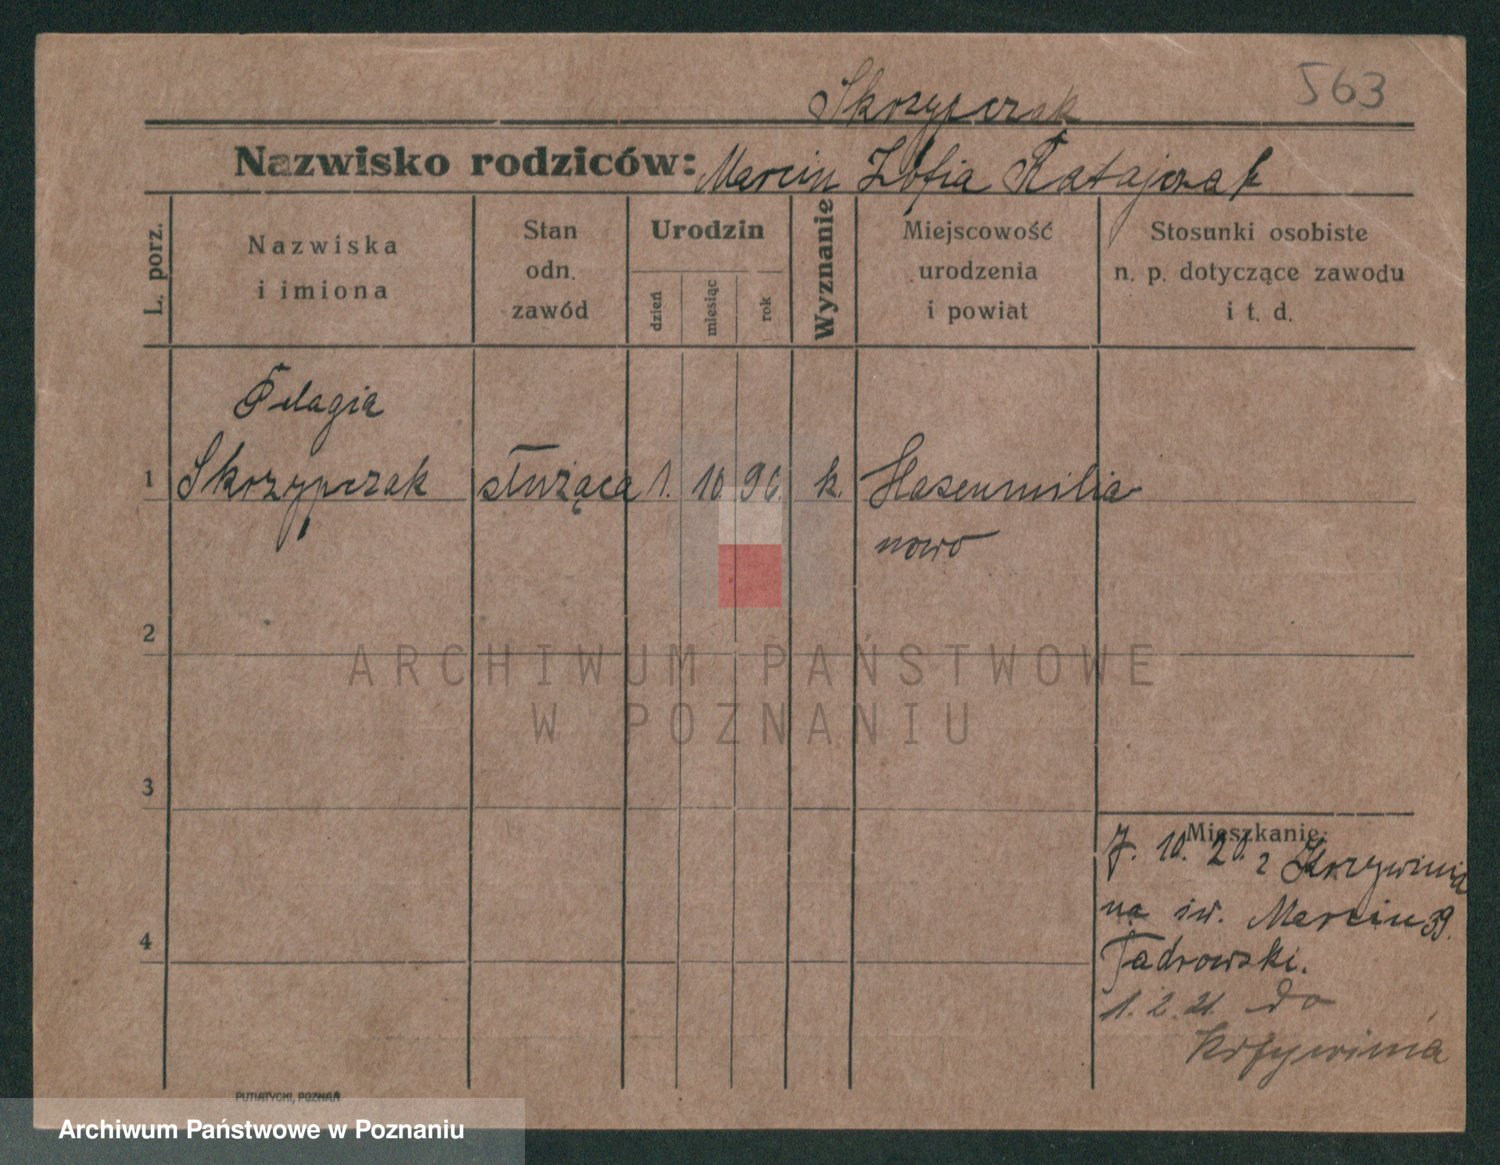 563
Skrzypczak
Nazwisko rodziców: Marcin Zofia Ratajczak
L. porz.
Nazwiska
i imiona
Stan
odn.
zawód
Urodzin
dzień
miesiąc
rok
Wyznanie
Miejscowość
urodzenia
i powiat
Stosunki osobiste
n. p. dotyczące zawodu
i t. d.
Pelagia
1 Skrzypczak służąca 1. 10 90. k. Hasenmilia
nowo
2
ARCHIWUM PAŃSTWOWE
W POZNANIU
3
Mieszkanie:
7. 10. 20. z Krzywinia
na św. Marcin 39.
4
Jadrowski.
1. 2. 21. do
Krzywinia
PUTIATYCKI, POZNAŃ
Archiwum Państwowe w Poznaniu